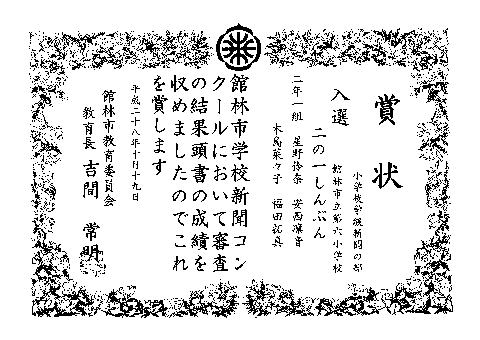 賞状
小学校学級新聞の部
入選
館林市立第六小学校
二の一しんぶん
二年一組 星野怜奈 安西凛音
木島菜々子 福田拓真
館林市学校新聞コン
クールにおいて審査
の結果頭書の成績を
収めましたのでこれ
を賞します
平成二十八年十月十九日
館林市教育委員会
教育長 吉間 常明